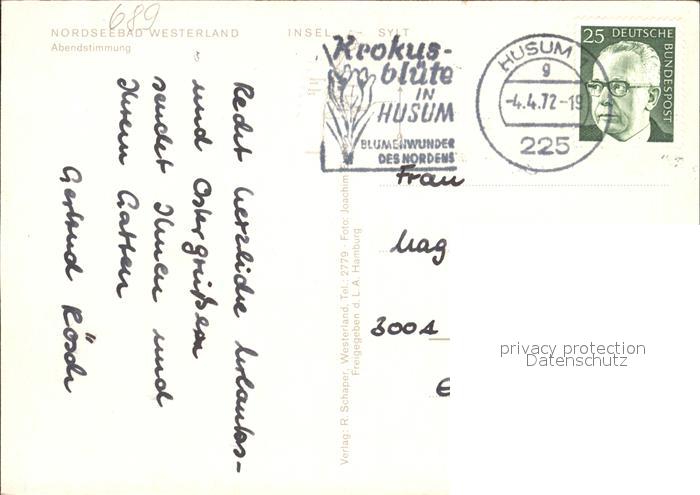 689
NORDSEEBAD WESTERLAND INSEL SYLT
Abendstimmung
Recht herzliche Urlaubs-
und Ostergrüßen
sendet Ihnen und
Ihrem Gatten
Gertrud Rösch
Verlag: R. Schaper, Westerland, Tel.: 2779 · Foto: Joachim
Freigegeben d. L.A. Hamburg
Krokus-
blüte
IN
HUSUM
BLUMENWUNDER
DES NORDENS
HUSUM
g
-4.4.72-19
225
25 DEUTSCHE
BUNDESPOST
Frau
Mag
3001
privacy protection
Datenschutz